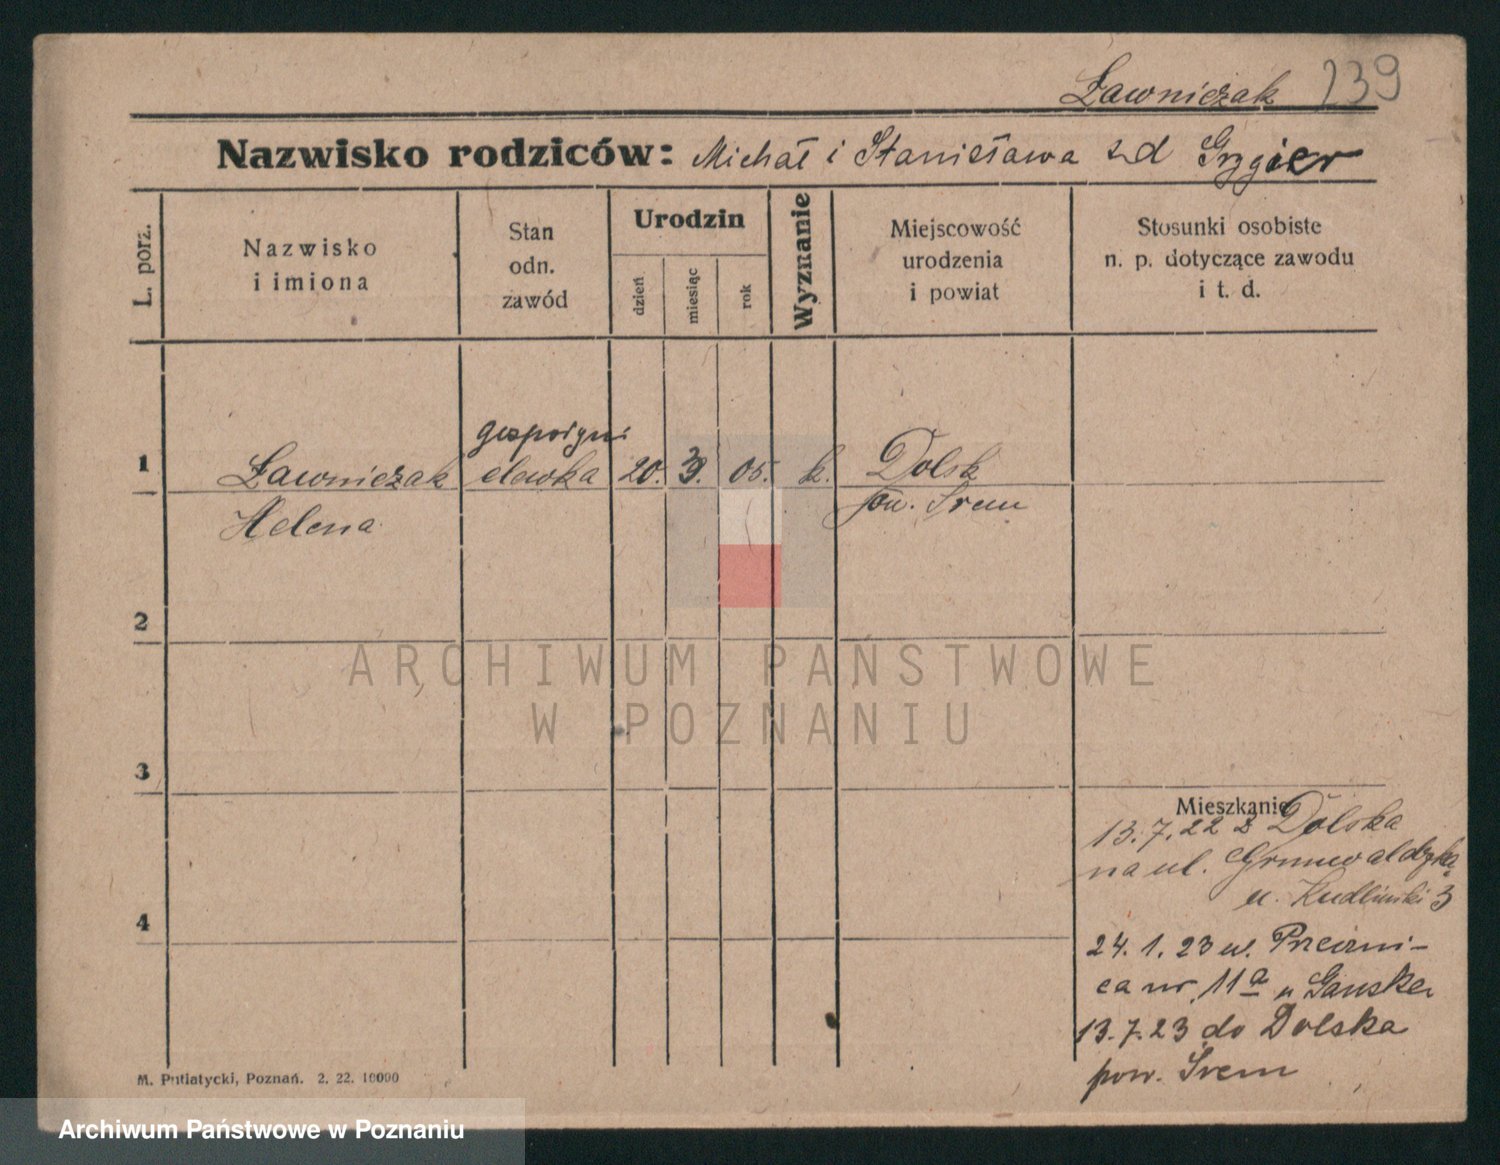 Ławniczak 239
Nazwisko rodziców: Michał i Stanisława zd Grygier
L. porz.
Nazwisko
i imiona
Stan
odn.
zawód
Urodzin
dzień
miesiąc
rok
Wyznanie
Miejscowość
urodzenia
i powiat
Stosunki osobiste
n. p. dotyczące zawodu
i t. d.
1 Ławniczak elewka 20. 3. 05. k. Dolsk
Helena pow. Śrem
2
3
4
Mieszkanie
13.7.22 z Dolska
na ul. Grunwaldzką
u. Kudliński 3
24.1.23 w.
ca nr. 11a u
13.7.23 do Dolska
pow. Śrem
M. Putiatycki, Poznań. 2. 22. 10000
ARCHIWUM PAŃSTWOWE
W POZNANIU
Archiwum Państwowe w Poznaniu